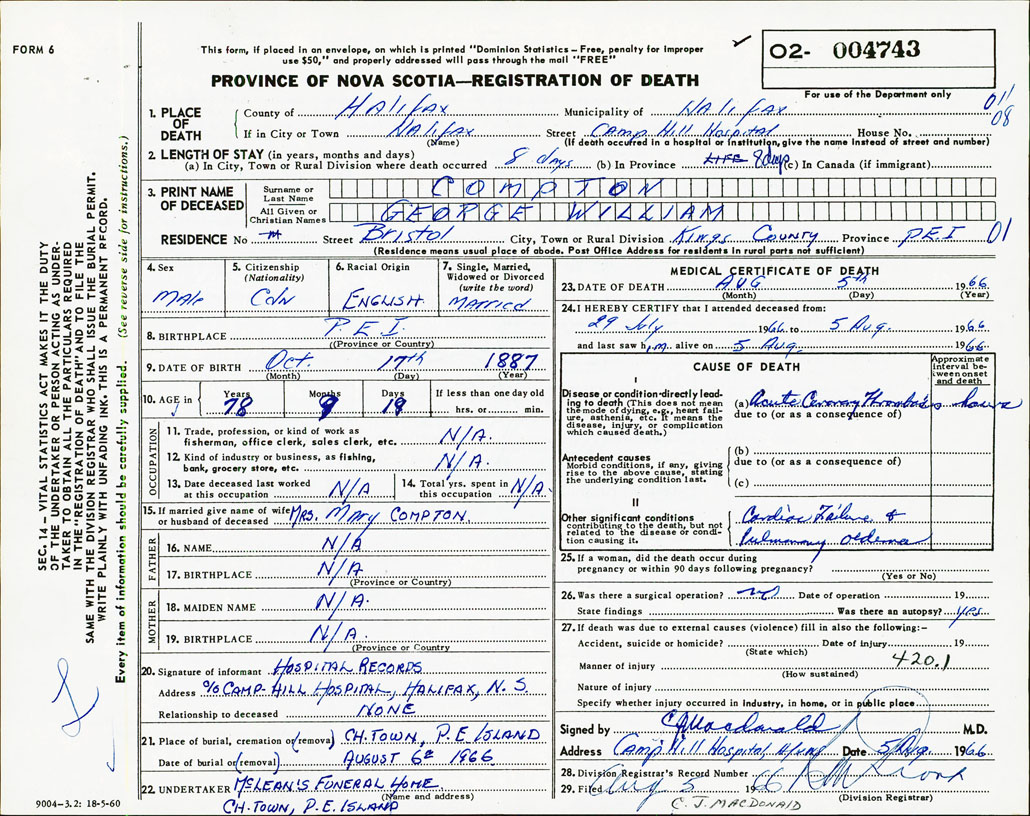 FORM 6
This form, if placed in an envelope, on which is printed "Dominion Statistics – Free, penalty for improper
use $50," and properly addressed will pass through the mail "FREE"
PROVINCE OF NOVA SCOTIA—REGISTRATION OF DEATH
O2- 004743
For use of the Department only
011
08
1. PLACE OF DEATH
County of Halifax Municipality of Halifax
If in City or Town Halifax Street Camp Hill Hospital House No.
(Name) (If death occurred in a hospital or institution, give the name instead of street and number)
2. LENGTH OF STAY (in years, months and days)
(a) In City, Town or Rural Division where death occurred 8 days (b) In Province LIFE 8 days (c) In Canada (if immigrant)
3. PRINT NAME OF DECEASED
Surname or Last Name COMPTON
All Given or Christian Names GEORGE WILLIAM
RESIDENCE No Street Bristol City, Town or Rural Division Kings County Province PEI 01
(Residence means usual place of abode. Post Office Address for residents in rural parts not sufficient)
4. Sex
Male
5. Citizenship
(Nationality)
Cdn
6. Racial Origin
ENGLISH
7. Single, Married, Widowed or Divorced
(write the word)
MARRIED
8. BIRTHPLACE P.E.I.
(Province or Country)
9. DATE OF BIRTH Oct. 17th 1887
(Month) (Day) (Year)
10. AGE in
Years Months Days If less than one day old
78 9 19 hrs. or min.
OCCUPATION
11. Trade, profession, or kind of work as
fisherman, office clerk, sales clerk, etc. N/A.
12. Kind of industry or business, as fishing,
bank, grocery store, etc. N/A.
13. Date deceased last worked
at this occupation N/A
14. Total yrs. spent in
this occupation N/A
15. If married give name of wife
or husband of deceased MRS. MARY COMPTON.
FATHER
16. NAME N/A
17. BIRTHPLACE N/A
(Province or Country)
MOTHER
18. MAIDEN NAME N/A.
19. BIRTHPLACE N/A.
(Province or Country)
20. Signature of informant HOSPITAL RECORDS
Address c/o CAMP-HILL HOSPITAL, HALIFAX, N.S.
Relationship to deceased NONE
21. Place of burial, cremation or (removal) CH.TOWN, P.E.ISLAND
Date of burial or (removal) AUGUST 6th 1966
22. UNDERTAKER McLEAN'S FUNERAL HOME.
(Name and address)
CH.TOWN, P.E.ISLAND
9004-3.2: 18-5-60
MEDICAL CERTIFICATE OF DEATH
23. DATE OF DEATH AUG 5th 1966
(Month) (Day) (Year)
24. I HEREBY CERTIFY that I attended deceased from:
29 July 1966 to 5 Aug. 1966
and last saw him alive on 5 Aug. 1966
CAUSE OF DEATH
Approximate interval between onset and death
I
Disease or condition directly lead-
ing to death (This does not mean
the mode of dying, e.g., heart fail-
ure, asthenia, etc. It means the
disease, injury, or complication
which caused death.)
(a) Acute Coronary Thrombosis hours
due to (or as a consequence of)
Antecedent causes
Morbid conditions, if any, giving
rise to the above cause, stating
the underlying condition last.
(b)
due to (or as a consequence of)
(c)
II
Other significant conditions
contributing to the death, but not
related to the disease or condi-
tion causing it.
Cardiac Failure &
Pulmonary oedema
25. If a woman, did the death occur during
pregnancy or within 90 days following pregnancy?
(Yes or No)
26. Was there a surgical operation? no Date of operation 19
State findings Was there an autopsy? yes
27. If death was due to external causes (violence) fill in also the following:–
Accident, suicide or homicide? Date of injury 19
(State which)
420.1
Manner of injury
(How sustained)
Nature of injury
Specify whether injury occurred in industry, in home, or in public place
Signed by CJMacdonald M.D.
Address Camp Hill Hospital, Date 5 Aug. 1966
28. Division Registrar's Record Number
29. Filed Aug 5 1966
(Division Registrar)
C. J. MACDONALD
SEC. 14– VITAL STATISTICS ACT MAKES IT THE DUTY
OF THE UNDERTAKER OR PERSON ACTING AS UNDER-
TAKER TO OBTAIN ALL THE PARTICULARS REQUIRED
IN THE "REGISTRATION OF DEATH" AND TO FILE THE
SAME WITH THE DIVISION REGISTRAR WHO SHALL ISSUE THE BURIAL PERMIT.
WRITE PLAINLY WITH UNFADING INK. THIS IS A PERMANENT RECORD.
Every item of information should be carefully supplied. (See reverse side for instructions.)